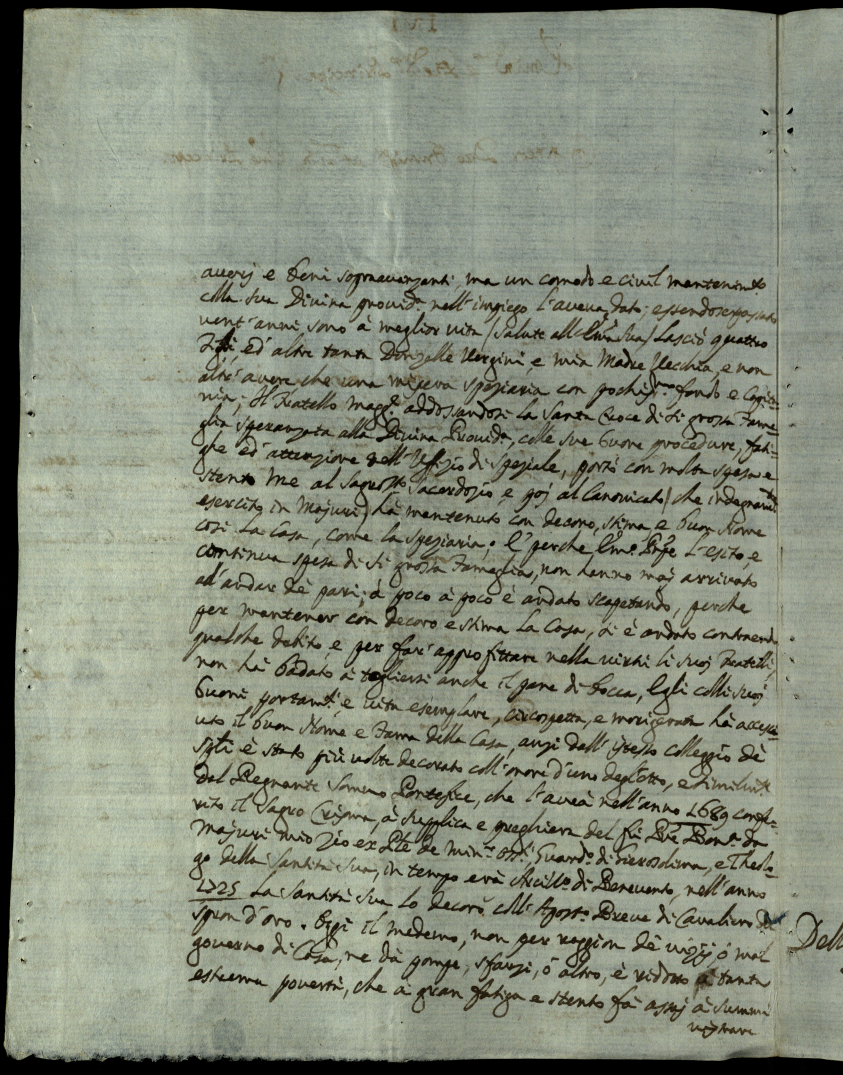 averij e beni sopravanzanti, ma un comodo e civil mantenimto
colla sua Divina provida nell'impiego l'aveva dato; essendosi passato
vent'anni, sono à meglior vita (salute all' Sua) Lasciò quattro
Figli, ed'altre tante Donzelle Vergini, e mia Madre Vecchia, e non
altr'avere che una misera speziaria con pochissmo fondo e
Il Fratello magge addossandosi la Santa Croce di sì grossa Fame
glia speranzata alla Divina Provida, colle sue buone procedure, fati=
ghe ed'attenzione nell'Uffizio di Speziale, portò con molta spesa e
stento me al Sagrosto Sacerdozio e poj al Canonicato (che indegname
esercito in Majuri) hà mantenuto con decoro, stima e buon Nome
così la Casa, come la speziaria; E' perche l'esito, e
continua spesa di sì grossa Fameglia, non hanno maj arrivato
ad'andar dè pari; à poco à poco è andato scapetando, perche
per mantener con decoro e stima la Casa, si è andato contraendo
qualche debito, e per far'approfittare nella virtù li suoj Fratelli,
non hà badato à togliersi anche il pane di bocca, Egli colli suoj
buoni portamti e vita esemplare, circospetta, e morigerata hà
uto il buon Nome e Fama della Casa, anzi dall'istesso colleggio dè
Spli è stato più volte decorato coll'onore d'uno degl'otto, e similmte
dal Regnante Sommo Pontefice, che l'aveà nell'anno 1689 confe=
rito il Sagro Crisma, à supplica e preghiera del fù Pre Bona da
Majuri mio Zio ex Ple de Mini Ossti, Guardo di Gierosolima, e Theolo=
go della Santità Sua, in tempo erà Arcivo di Benevento, nell'anno
1725 La Santità Sua lo decorò coll'Aposto Breve di Cavaliero
spron d'oro. Oggi il medemo, non per raggion dè vizzij ò mal
governo di Casa, ne dà pompe, sfarzi, ò altro, è ridotto à tanta
estrema povertà, che à gran fatiga e stento fà assaj à summi
nistrare
Dell